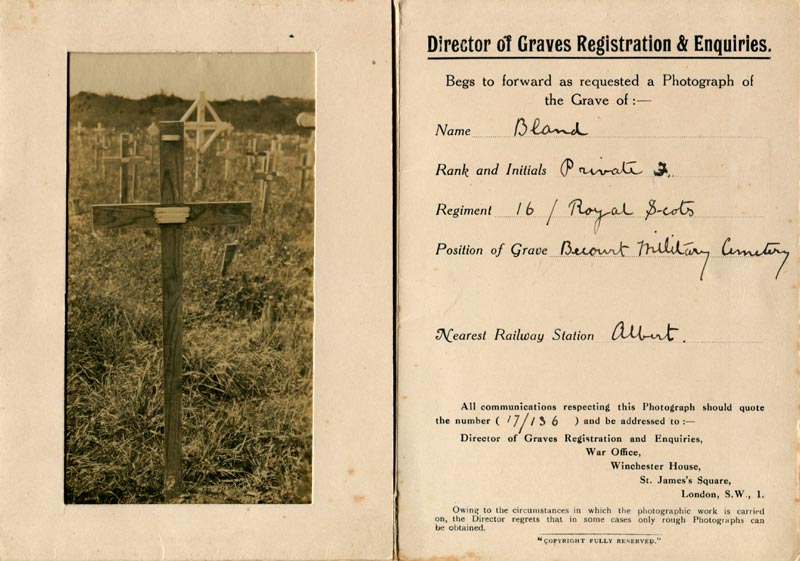 Director of Graves Registration & Enquiries.
Begs to forward as requested a Photograph of
the Grave of :—
Name Bland
Rank and Initials Private J.
Regiment 16 / Royal Scots
Position of Grave Becourt Military Cemetery
Nearest Railway Station Albert.
All communications respecting this Photograph should quote
the number ( 17/136 ) and be addressed to :—
Director of Graves Registration and Enquiries,
War Office,
Winchester House,
St. James's Square,
London, S.W., 1.
Owing to the circumstances in which the photographic work is carried
on, the Director regrets that in some cases only rough Photographs can
be obtained.
"COPYRIGHT FULLY RESERVED."